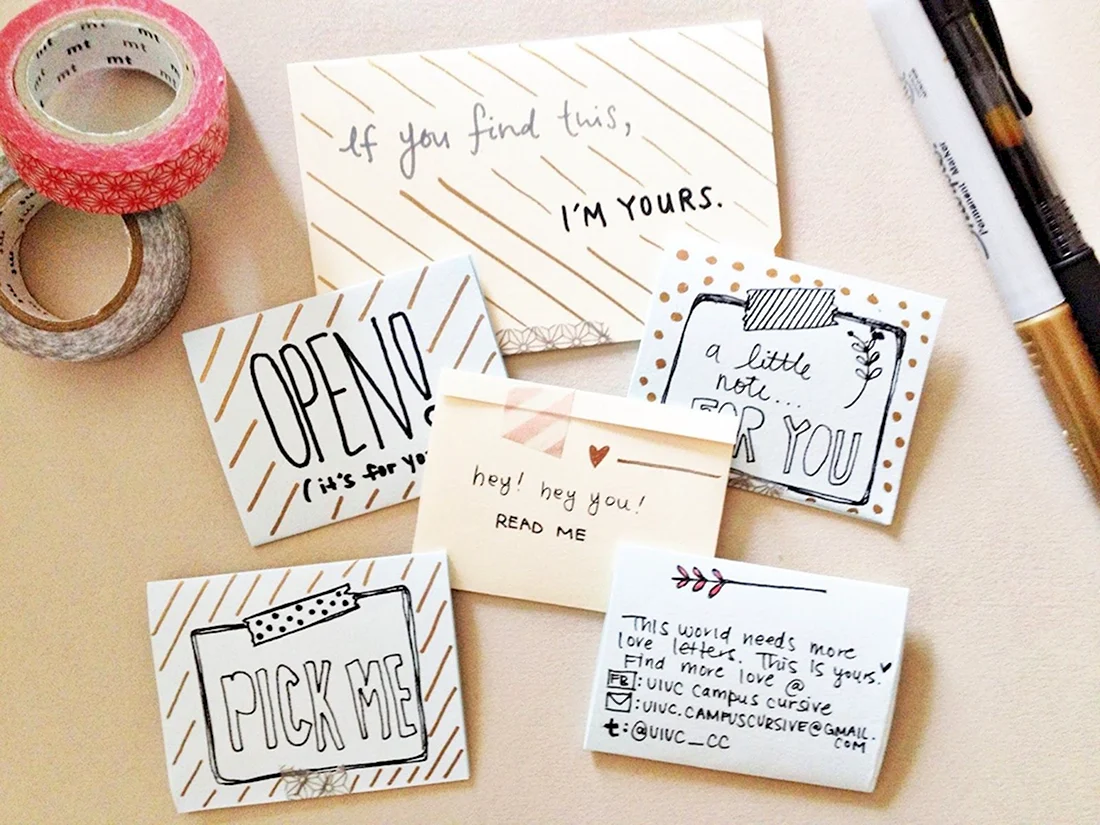 mt mt mt mt mt mt
If you find this,
I'M YOURS.
Permanent Marker
OPEN!
(it's for yo
a little
note...
FOR YOU
hey! hey you!
READ ME
PICK ME
This world needs more
love letters. This is yours.
Find more love @
FB: UIUC campus cursive
: UIUC.CAMPUSCURSIVE@GMAIL.
COM
t: @UIUC_CC